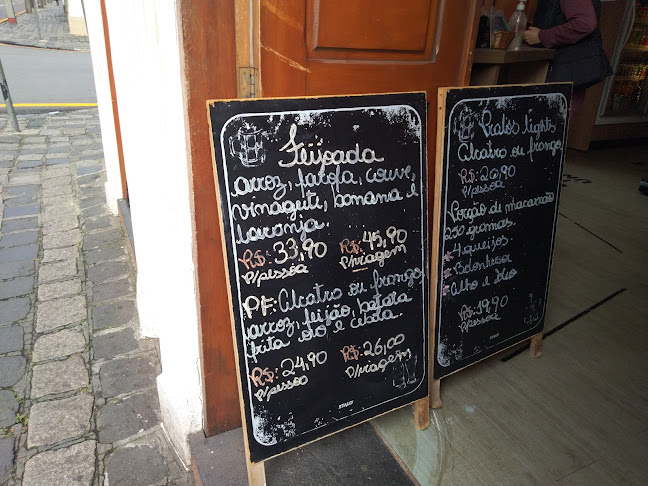 Feijoada
arroz, farofa, couve,
vinagrete, banana e
laranja.
R$: 33,90
P/pessoa
R$: 45,90
P/viagem
PF: Alcatra ou frango,
arroz, feijão, batata
frita ovo e salada.
R$: 24,90
P/pessoa
R$: 26,00
P/viagem
STALO
Pratos lights
Alcatra ou frango
R$: 20,90
P/pessoa
Porção de macarrão
250 gramas.
4 queijos
Bolonhesa
Alho e óleo
R$: 19,90
P/pessoa